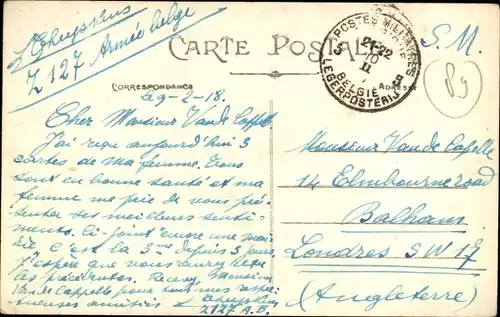 Z 127 Armée belge
CARTE POSTALE
S. M.
POSTES MILITAIRES
BELGIE
LEGERPOSTERIJ
CORRESPONDANCE
9-2-18.
Cher Monsieur Van de Capelle
J'ai reçu aujourd'hui 3
cartes de ma femme. Tous
sont en bonne santé et ma
femme me prie de vous pré-
senter ses meilleurs senti-
ments. Ci-joint encore une
C'est la 3me depuis 3 jours
J'espère que vous aurez reçu
les précédentes. Recevez Monsieur
Van de Cappelle pour tous nos respec-
tueuses amitiés
Z127 A.B.
Monsieur Van de Capelle
14 Elmbourne road
Balham
Londres SW 17
(Angleterre)